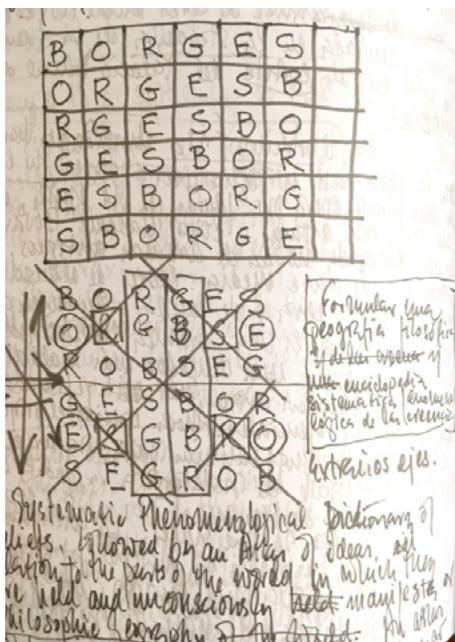 B O R G E S
O R G E S B
R G E S B O
G E S B O R
E S B O R G
S B O R G E
B O R G E S
O R G B S E
R O B S E G
G E S B O R
E R G B R O
S E G R O B
Formular una
geografía filosófica
y
una enciclopedia
sistemática
lógica de las creencias
ejes.
Systematic Phenomenological Dictionary of
liefs, followed by an Atlas of ideas,
lation to the parts of the world in which they
re held and unconsciously held manifests
hilosophic